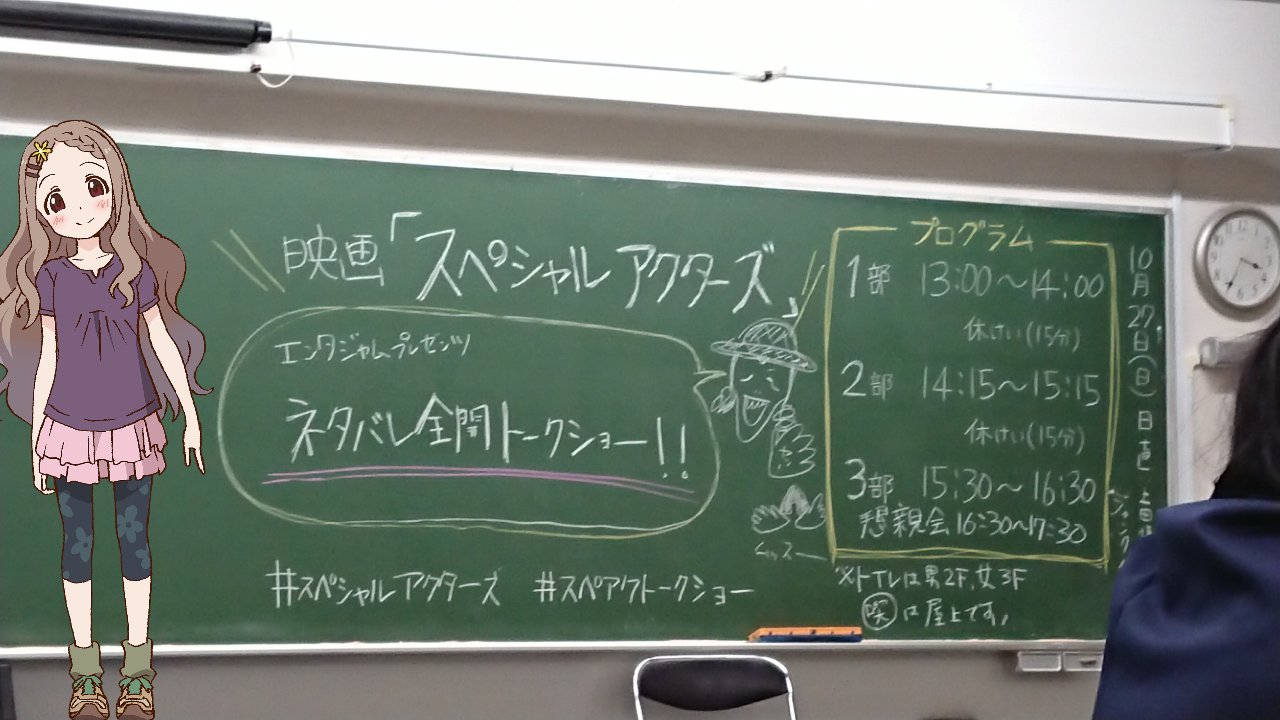 映画「スペシャルアクターズ」
エンタジャムプレゼンツ
ネタバレ全開トークショー!!
#スペシャルアクターズ #スペアクトークショー
プログラム
1部 13:00〜14:00
休けい(15分)
2部 14:15〜15:15
休けい(15分)
3部 15:30〜16:30
懇親会 16:30〜17:30
※トイレは男2F、女3F
喫は屋上です。
10月27日(日)
日直